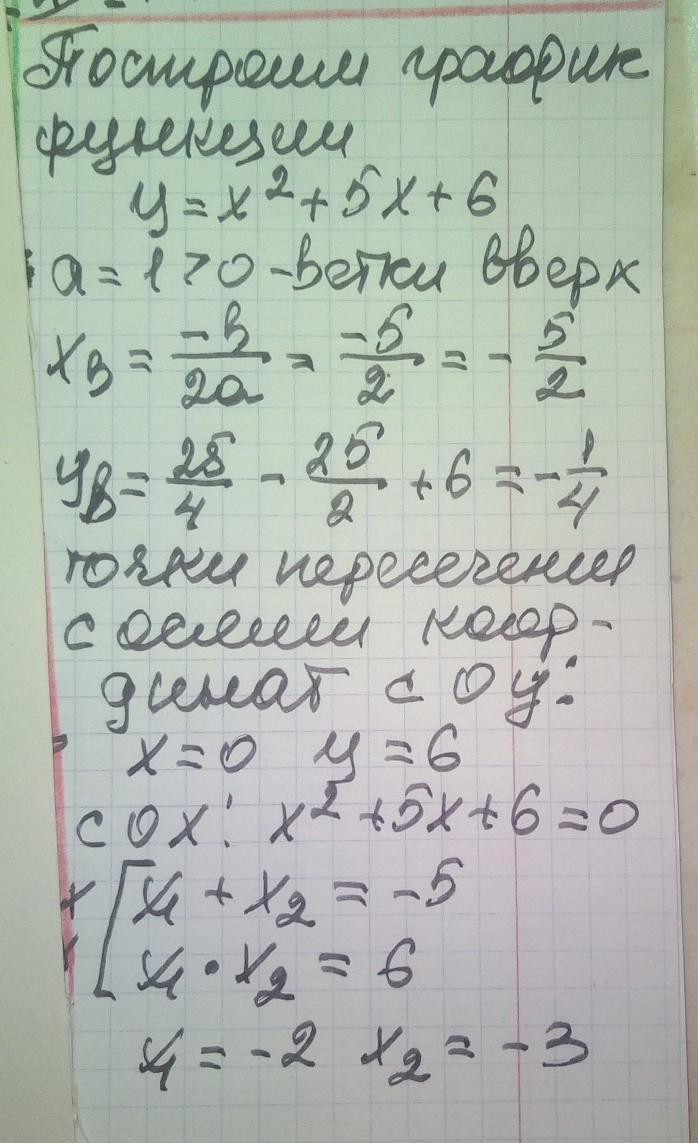 Построим график
функции
y = x² + 5x + 6
a = 1 > 0 - ветки вверх
x_B = -B/2a = -5/2 = - 5/2
y_B = 25/4 - 25/2 + 6 = - 1/4
точки пересечения
с осями коор-
динат с OY:
x = 0 y = 6
с OX: x² + 5x + 6 = 0
[ x₁ + x₂ = -5
x₁ · x₂ = 6
x₁ = -2 x₂ = -3